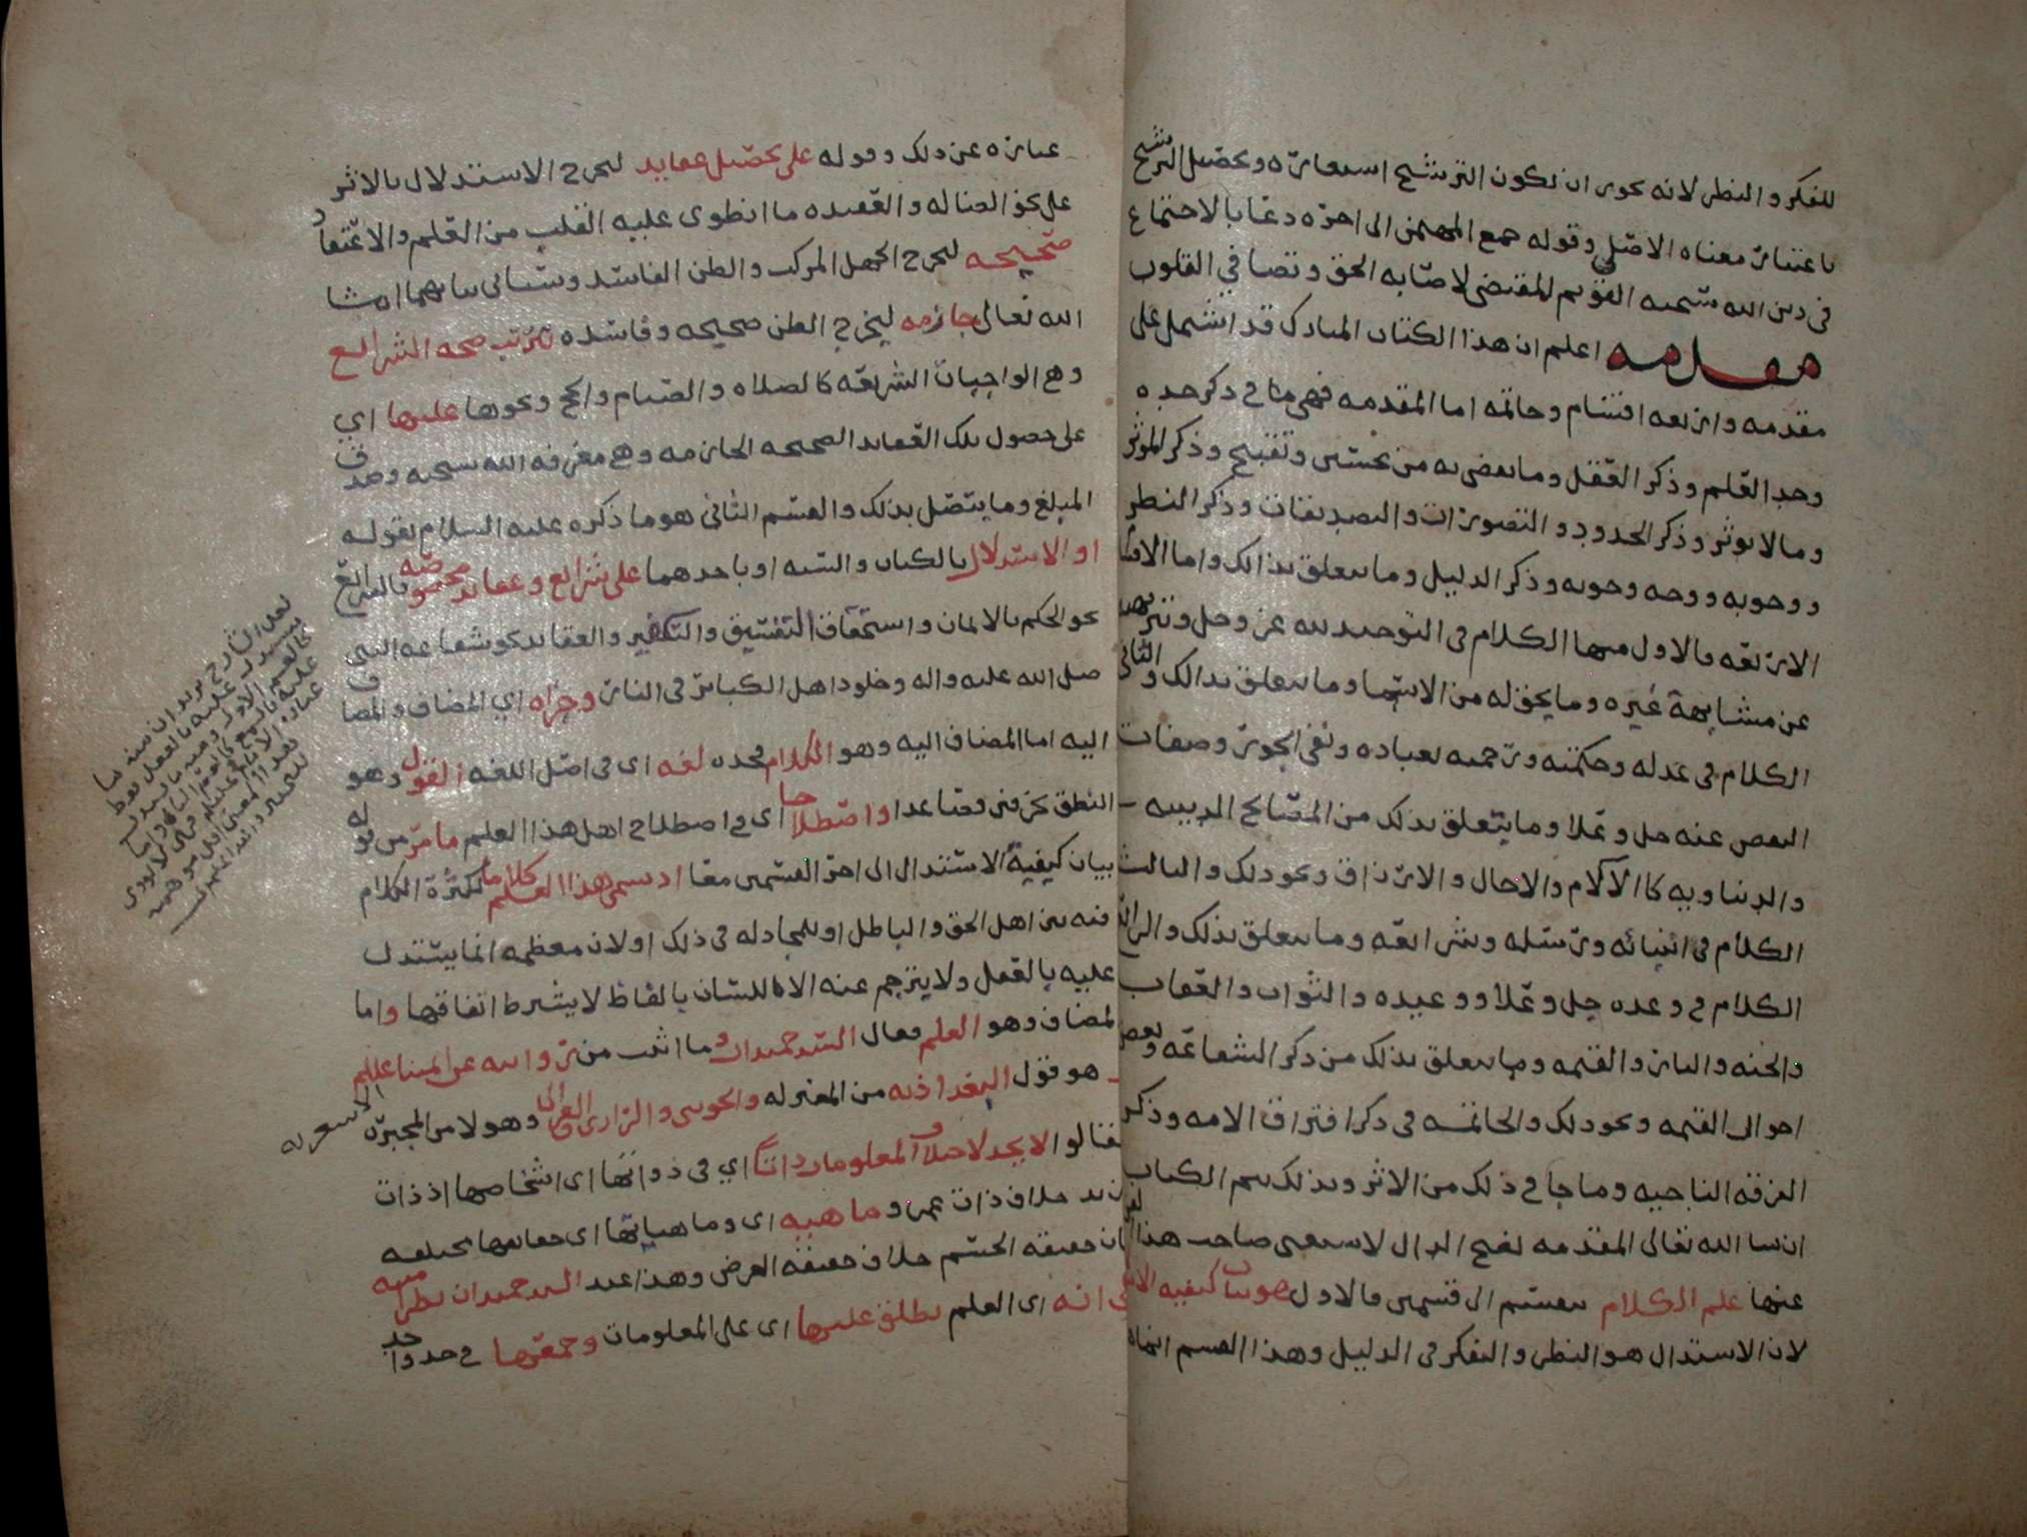 للفكر والنظر لانه يحوز ان يكون الترشيح استعاره وتحصيل الترشيح
باعتبار معناه الاصلي وقوله جمع المهتمين الى اخره دعا بالاجتماع
في دين الله سبحنه القويم المقتضي لاصابه الحق وتصافي القلوب
مقدمه اعلم ان هذا الكتاب المبارك قد اشتمل على
مقدمه واربعه اقسام وخاتمه اما المقدمه فهي ما في ذكر حده
وحد العلم وذكر العقل وما يقضي به من تحسين وتقبيح وذكر الموثر
وما لا يوثر وذكر الحدود والتصورات والتصديقات وذكر النظر
ووجوبه ووجه وجوبه وذكر الدليل وما يتعلق بذالك واما الاقسا
الاربعه فالاول منها الكلام في التوحيد لله عز وجل وتنزيهه
عن مشابهة غيره وما يحق له من الاسما وما يتعلق بذالك والثاني
الكلام في عدله وحكمته ورحمته لعباده ونفي الجور وصفات
النقص عنه جل وعلا وما يتعلق بذلك من المصالح الدينيه
والدنياويه كالآلام والاجال والارزاق ونحو ذلك والثالث
الكلام في انبيائه ورسله وشرائعه وما يتعلق بذلك والرابع
الكلام في وعده جل وعلا ووعيده والثواب والعقاب
والجنه والنار والقيمه وما يتعلق بذلك من ذكر الشفاعه وبعض
احوال القيمه ونحو ذلك والخاتمه في ذكر افتراق الامه وذكر
الفرقه الناجيه وما جا في ذلك من الاثر وبذلك يتم الكتاب
ان شا الله تعالى المقدمه بفتح الدال لا يستغني صاحب هذا الفن
عنها علم الكلام ينقسم الى قسمين فالاول هو بيان كيفيه الاس
لان الاستدلال هو النظر والتفكر في الدليل وهذا القسم
عباره عن ذلك وقوله على تحصيل عقايد ليخرج الاستدلال بالاثر
على نحو الضاله والعقيده ما انطوى عليه القلب من العلم والاعتقاد
صحيحه ليخرج الجهل المركب والظن الفاسد وسياتي بيانهما ان شا
الله تعالى جازمه ليخرج الظن صحيحه وفاسده تترتب صحه الشرائع
وهي الواجبات الشرعيه كالصلاه والصيام والحج ونحوها عليها اي
على حصول تلك العقايد الصحيحه الجازمه وهي معرفه الله سبحنه وصدق
المبلغ وما يتصل بذلك والقسم الثاني هو ما ذكره عليه السلام بقوله
او الاستدلال بالكتاب والسنه او باحدهما على شرائع وعقايد مخصوصه فالشرائع
نحو الحكم بالايمان واستحقاق التفسيق والتكفير والعقايد كشفاعه النبي
صلى الله عليه واله وخلود اهل الكبائر في النار وجزاه اي المضاف والمضاف
اليه اما المضاف اليه وهو الكلام فحده لغه اي في اصل اللغه القول وهو
النطق بحرفين فصاعدا واصطلاحا اي في اصطلاح اهل هذا العلم ما مر من قوله
بيان كيفية الاستدلال الى اخر القسمين معا اذ سمي هذا العلم كلاما لكثرة الكلام
فيه بين اهل الحق والباطل او للمجادله في ذلك او لان معظمه انما يستدل
عليه بالعقل ولا يترجم عنه الا اللسان بالفاظ لا يشترط اتفاقها واما
المضاف وهو العلم فقال السيد حميدان وما اثبت من رواية عن ائمتنا عليلم
هو قول البغداذيه من المعتزله والجويني والرازي والغزالي وهؤلا من المجبره الاشعريه
فقالوا لا يحد لاختلاف المعلومات ذاتا اي في ذواتها اي اشخاصها اذ ذات
زيد خلاف ذات عمرو وماهيه اي وماهياتها اي حقايقها مختلفه
فان حقيقه الجسم خلاف حقيقه العرض وهذا عند السيد حميدان نظرا منه
الى انه اي العلم يطلق عليها اي على المعلومات وجمعها في حد واحد